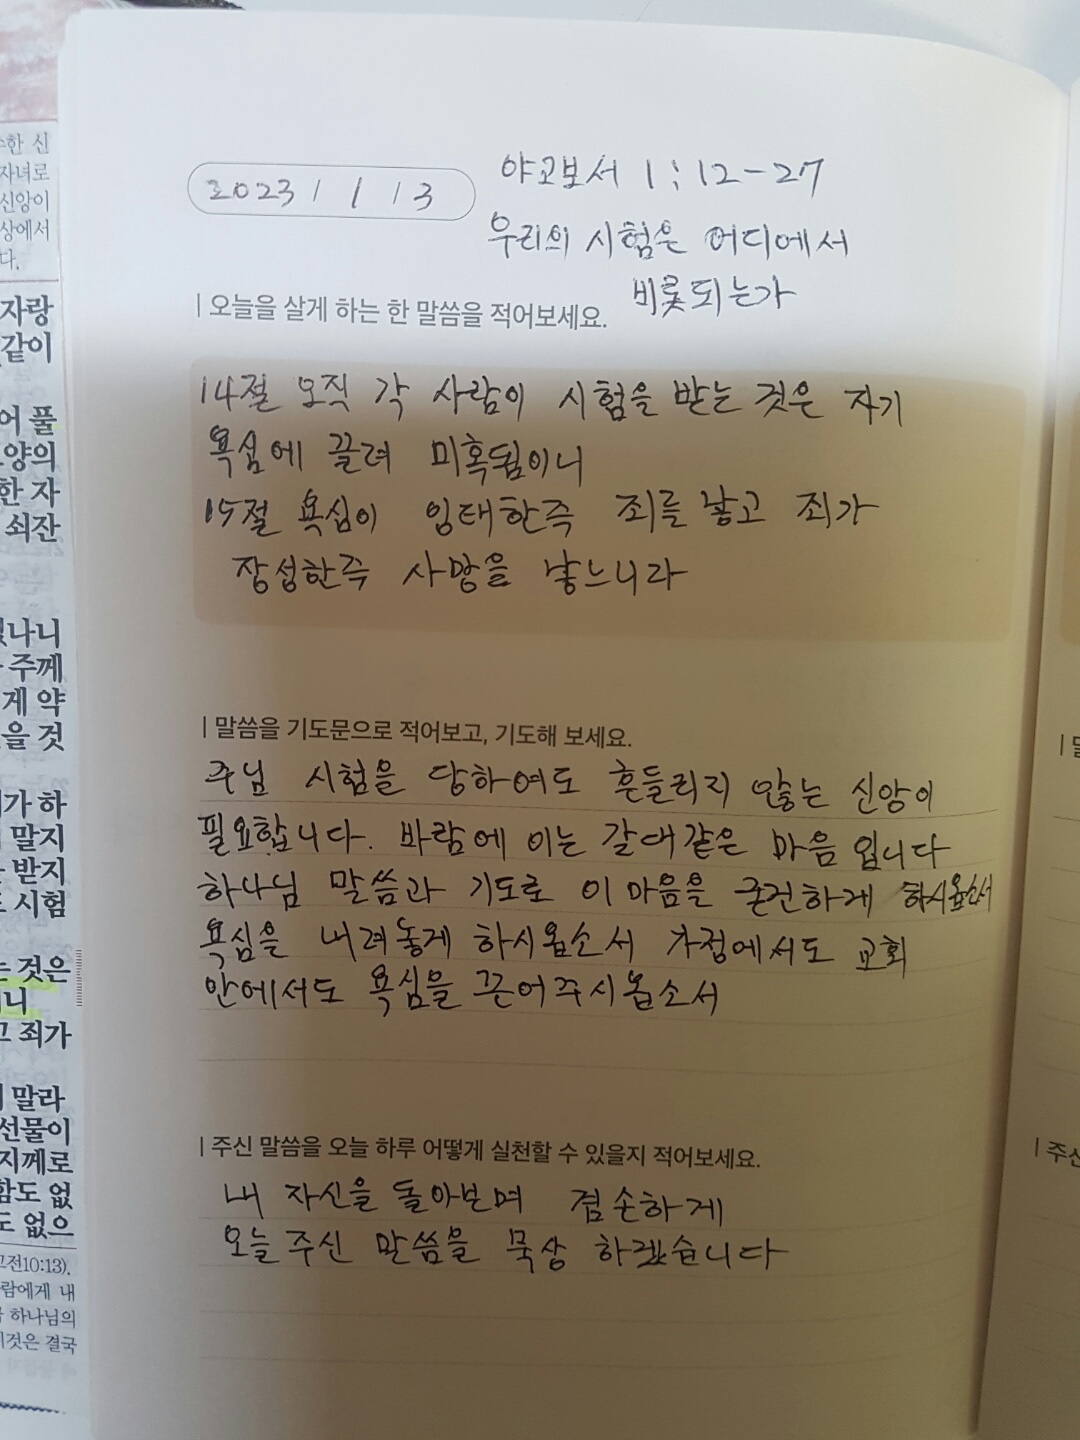 2023 / 1 / 3
야고보서 1 : 12 - 27
우리의 시험은 어디에서
비롯되는가
| 오늘을 살게 하는 한 말씀을 적어보세요.
14절 오직 각 사람이 시험을 받는 것은 자기
욕심에 끌려 미혹됨이니
15절 욕심이 잉태한즉 죄를 낳고 죄가
장성한즉 사망을 낳느니라
| 말씀을 기도문으로 적어보고, 기도해 보세요.
주님 시험을 당하여도 흔들리지 않는 신앙이
필요합니다. 바람에 이는 갈대같은 마음 입니다
하나님 말씀과 기도로 이 마음을 굳건하게 하시옵소서
욕심을 내려놓게 하시옵소서 가정에서도 교회
안에서도 욕심을 끈어주시옵소서
| 주신 말씀을 오늘 하루 어떻게 실천할 수 있을지 적어보세요.
내 자신을 돌아보며 겸손하게
오늘 주신 말씀을 묵상 하겠습니다
수한 신
자녀로
신앙이
상에서
다.
자랑
같이
어 풀
한 자
쇠잔
주께
게 약
을 것
가 하
말지
받지
시험
는 것은
니
고 죄가
말라
선물이
지께로
함도 없
도 없으
고전10:13).
람에게 내
하나님의
이것은 결국
| 주신